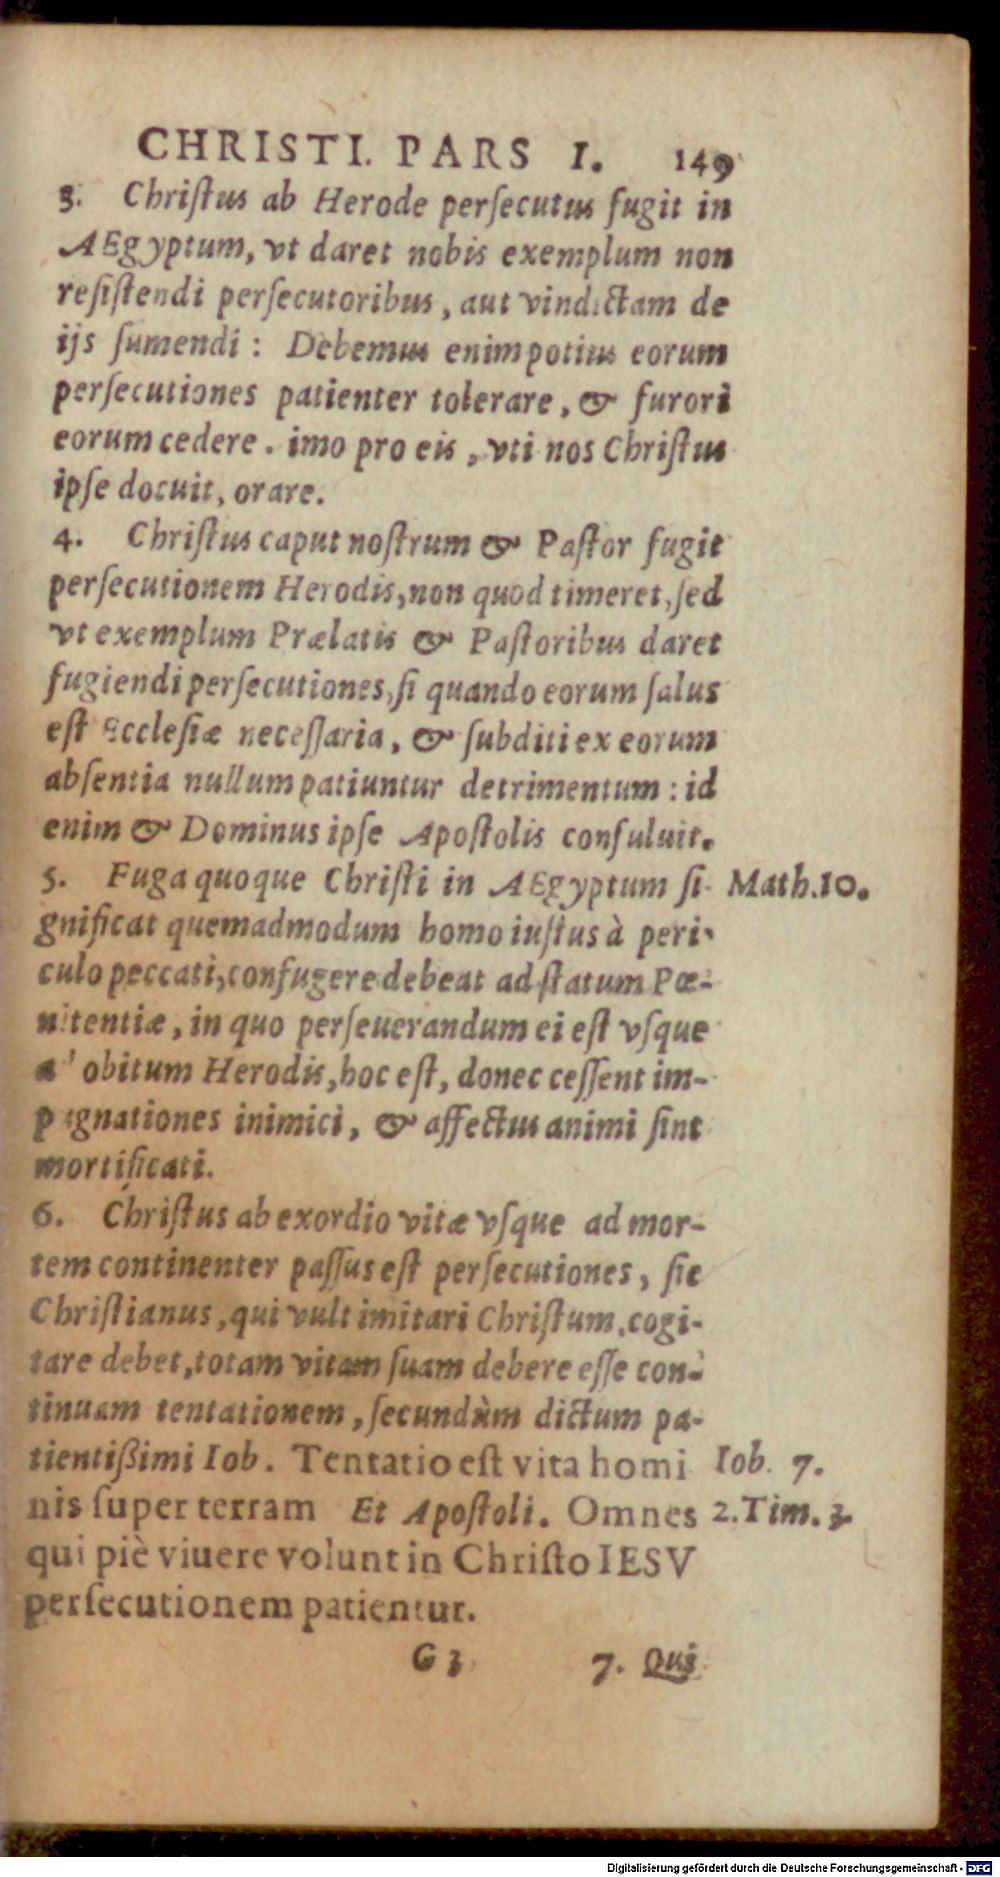 CHRISTI. PARS I. 149
3. Chriſtus ab Herode perſecutus fugit in
AEgyptum, vt daret nobis exemplum non
reſiſtendi perſecutoribus, aut vindictam de
ijs ſumendi: Debemus enim potius eorum
perſecutiones patienter tolerare, & furori
eorum cedere. imo pro eis, vti nos Chriſtus
ipſe docuit, orare.
4. Chriſtus caput noſtrum & Paſtor fugit
perſecutionem Herodis, non quod timeret, ſed
vt exemplum Prælatis & Paſtoribus daret
fugiendi perſecutiones, ſi quando eorum ſalus
eſt Eccleſiæ neceſſaria, & ſubditi ex eorum
abſentia nullum patiuntur detrimentum: id
enim & Dominus ipſe Apoſtolis conſuluit.
5. Fuga quoque Chriſti in AEgyptum ſi- Math.10.
gnificat quemadmodum homo iuſtus à peri-
culo peccati, confugere debeat ad ſtatum Pœ-
nitentiæ, in quo perſeuerandum ei eſt vſque
ad obitum Herodis, hoc eſt, donec ceſſent im-
pugnationes inimici, & affectus animi ſint
mortificati.
6. Chriſtus ab exordio vitæ vſque ad mor-
tem continenter paſſus eſt perſecutiones, ſic
Chriſtianus, qui vult imitari Chriſtum, cogi-
tare debet, totam vitam ſuam debere eſſe con-
tinuam tentationem, ſecundùm dictum pa-
tientißimi Iob. Tentatio eſt vita homi Iob. 7.
nis ſuper terram Et Apoſtoli. Omnes 2.Tim.3.
qui piè viuere volunt in Chriſto IESV
perſecutionem patientur.
G 3 7. Qui
Digitalisierung gefördert durch die Deutsche Forschungsgemeinschaft - DFG